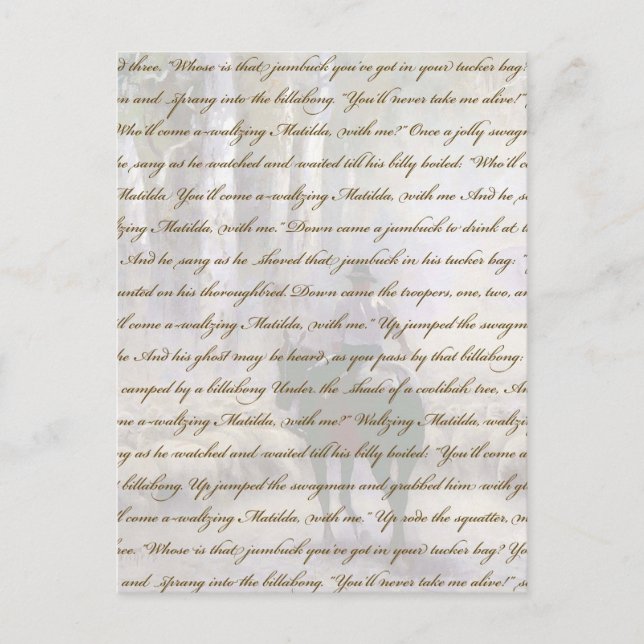 d three. "Whose is that jumbuck you've got in your tucker bag?
n and sprang into the billabong. "You'll never take me alive!"
Who'll come a-waltzing Matilda, with me?" Once a jolly swagm
he sang as he watched and waited till his billy boiled: "Who'll c
Matilda You'll come a-waltzing Matilda, with me And he s
zing Matilda, with me." Down came a jumbuck to drink at t
And he sang as he shoved that jumbuck in his tucker bag: "
unted on his thoroughbred. Down came the troopers, one, two, an
ll come a-waltzing Matilda, with me." Up jumped the swagm
he And his ghost may be heard as you pass by that billabong:
camped by a billabong Under the shade of a coolibah tree, An
come a-waltzing Matilda, with me?" Waltzing Matilda, waltzin
ng as he watched and waited till his billy boiled: "You'll come a
t billabong. Up jumped the swagman and grabbed him with gl
ll come a-waltzing Matilda, with me." Up rode the squatter, m
hree. "Whose is that jumbuck you've got in your tucker bag? Yo
and sprang into the billabong. "You'll never take me alive!" s